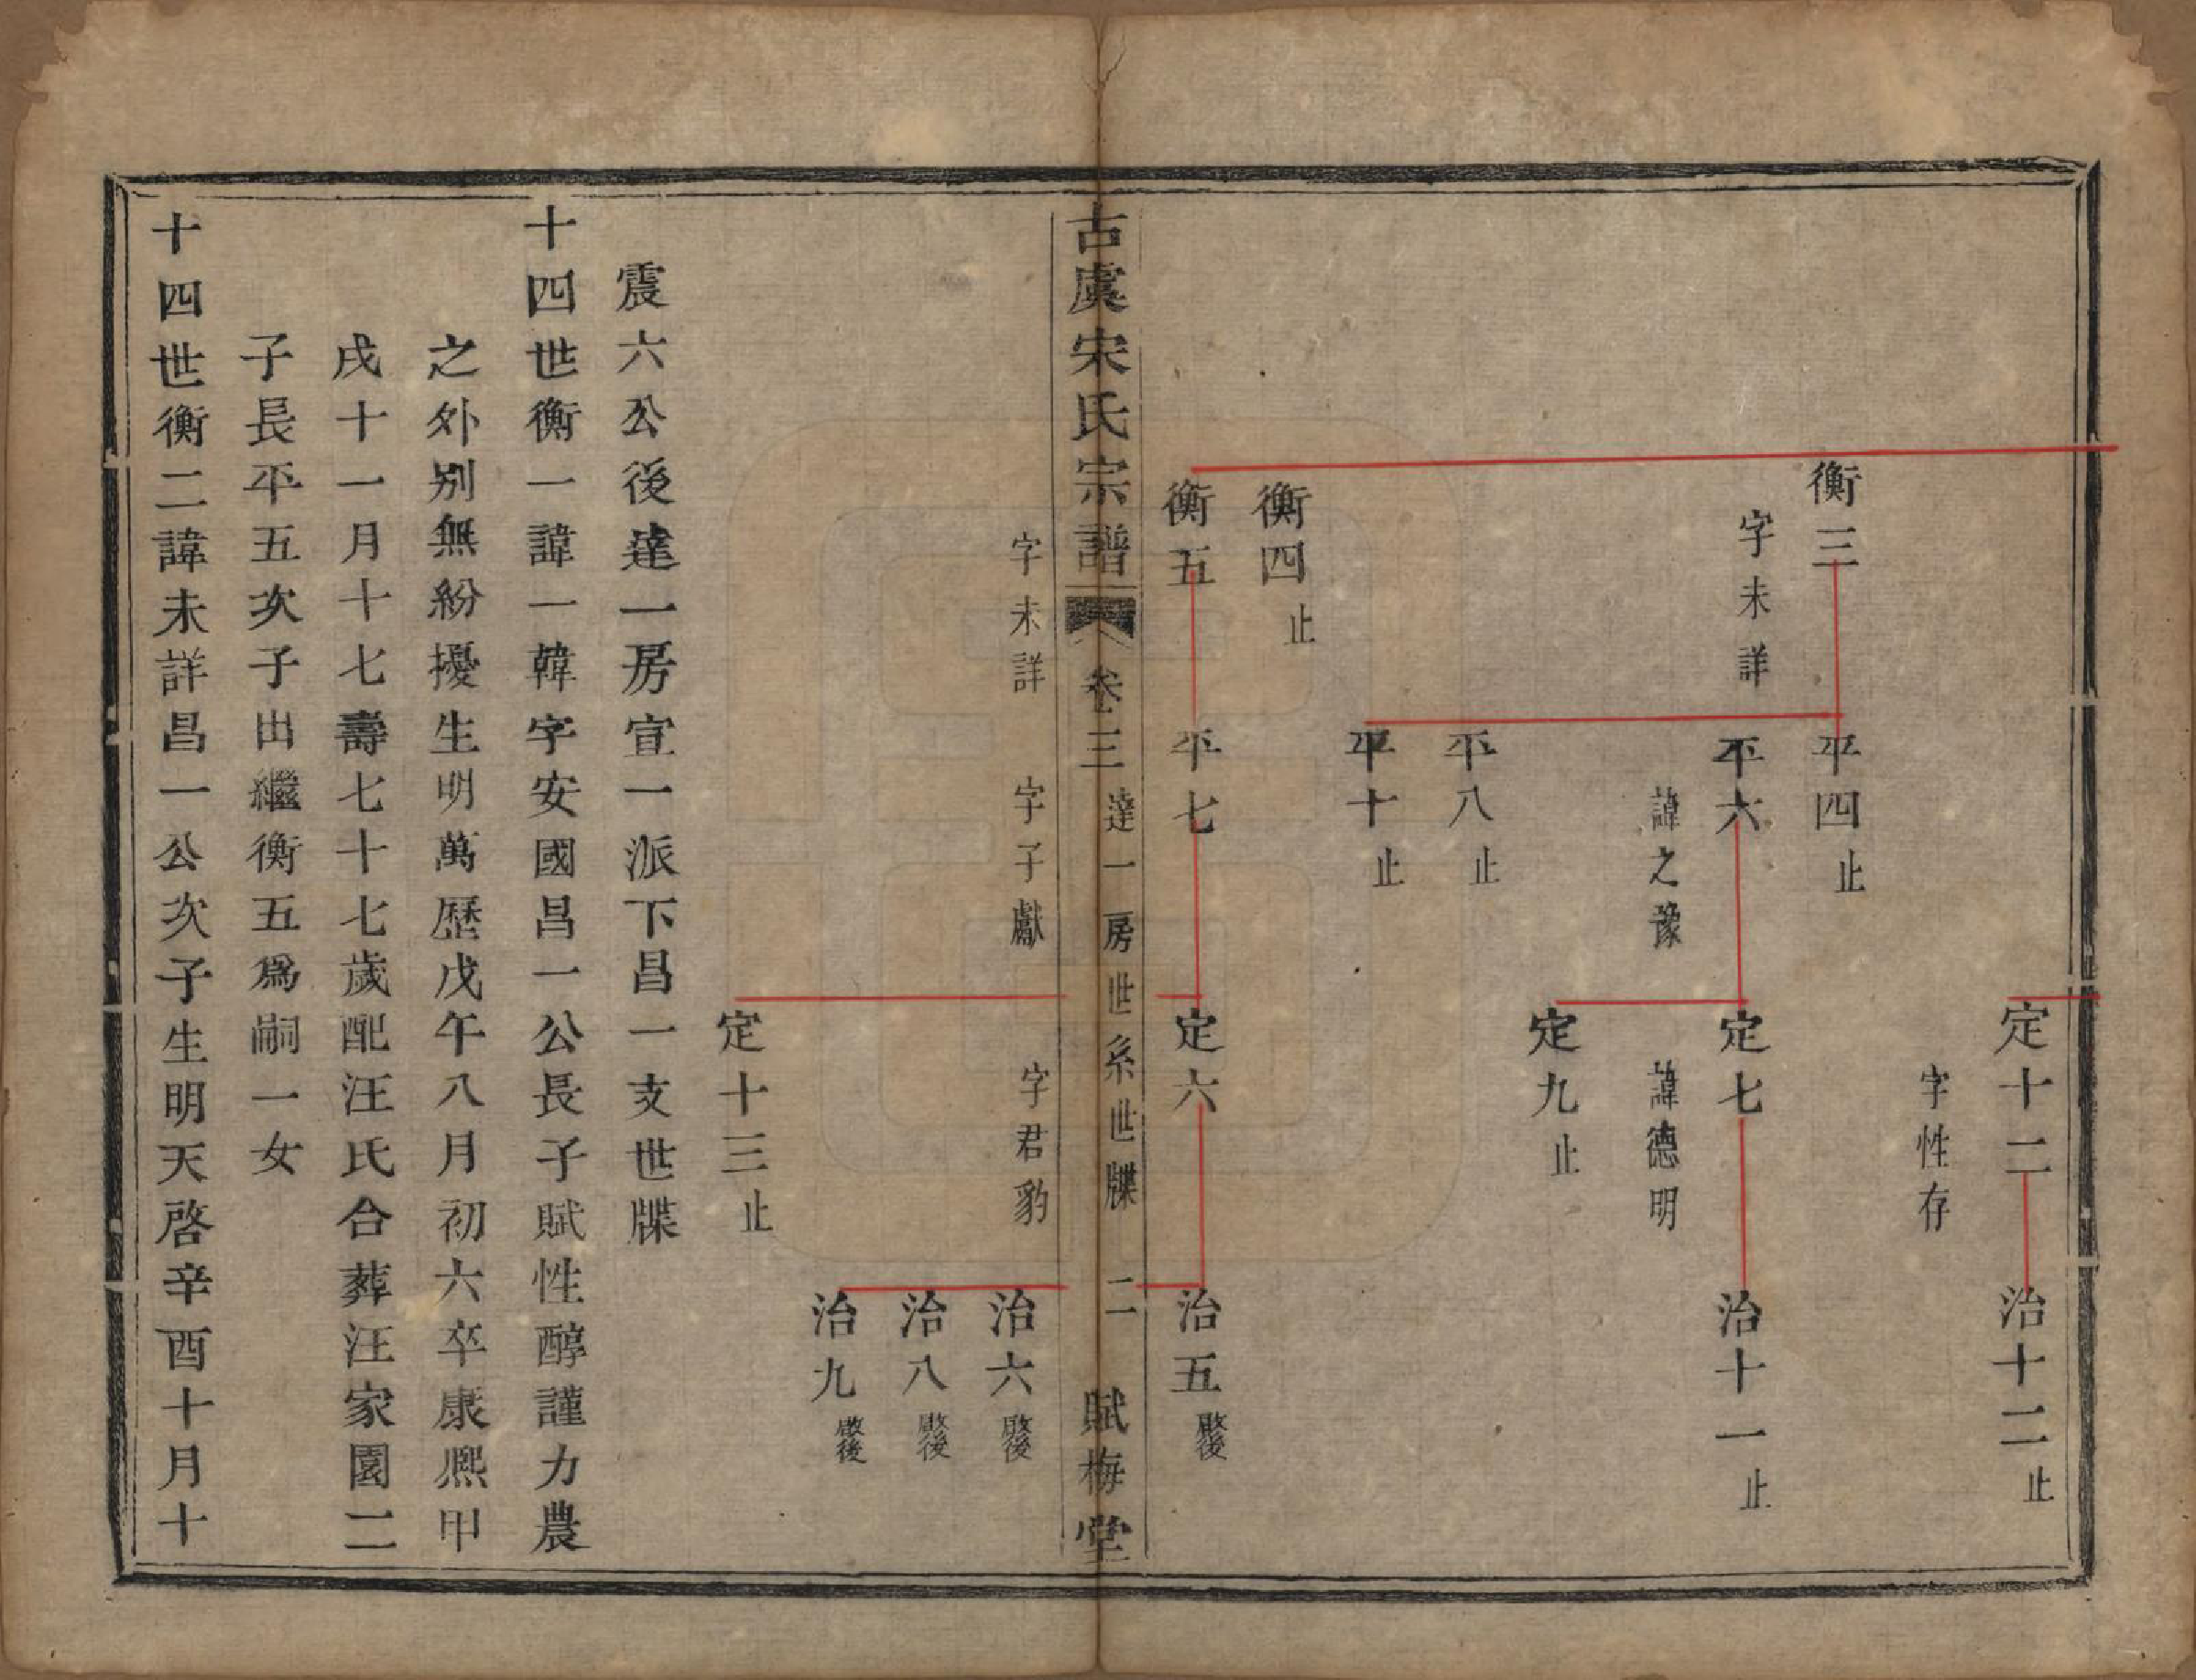 定十二
字性存
治十二止
衡三
字未詳
平四止
平六
諱之豫
定七
諱德明
治十一止
定九止
平八止
平十止
衡四止
衡五
平七
定六
治五啟後
古虞宋氏宗譜
卷三
達一房世系世牒
二
賦梅堂
字未詳
字子獻
字君豹
治六啟後
治八啟後
治九啟後
定十三止
震六公後達一房宣一派下昌一支世牒
十四世衡一諱一韓字安國昌一公長子賦性醇謹力農
之外別無紛擾生明萬歷戊午八月初六卒康熙甲
戌十一月十七壽七十七歲配汪氏合葬汪家園二
子長平五次子出繼衡五爲嗣一女
十四世衡二諱未詳昌一公次子生明天啓辛酉十月十